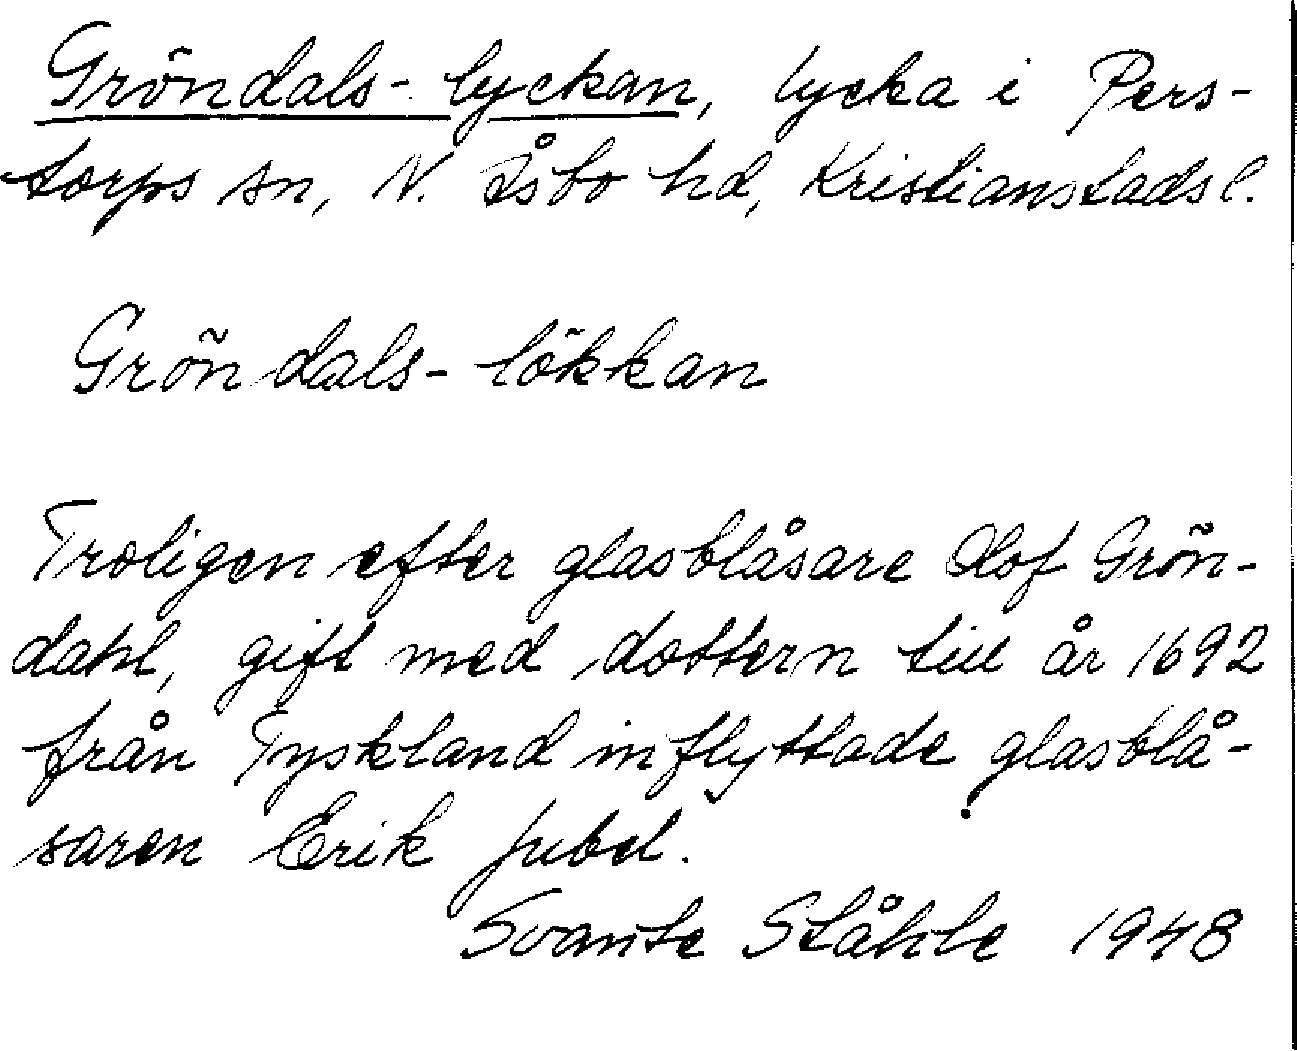 Gröndals-lyckan, lycka i Pers-
torps sn, N. Åsbo hd, Kristianstads l.
Gröndals-lökkan
Troligen efter glasblåsare Olof Grön-
dahl, gift med dottern till år 1692
från Tyskland inflyttade glasblå-
saren Erik Jubel.
Svante Ståhle 1948